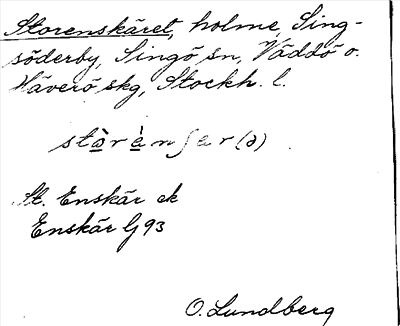 Storenskäret, holme, Sing-
söderby, Singö sn, Väddö o.
Häverö skg, Stockh. l.
stòrènʃer(ə)
St. Enskär ek
Enskär G 93
O. Lundberg